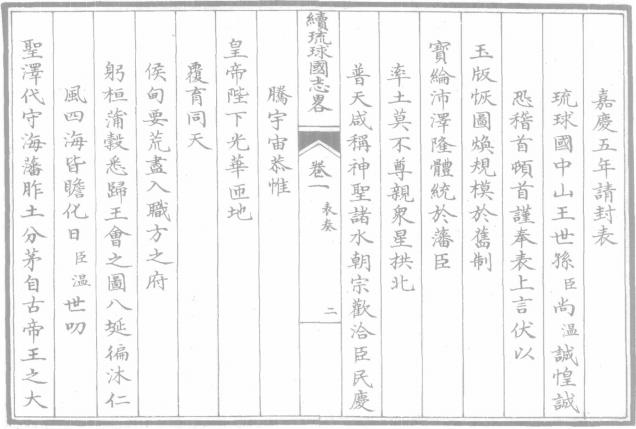 嘉慶五年請封表
琉球國中山王世孫臣尚溫誠惶誠
恐稽首頓首謹奉表上言伏以
玉版恢圖煥規模於舊制
寶綸沛澤隆體統於藩臣
率土莫不尊親衆星拱北
普天咸稱神聖諸水朝宗歡洽臣民慶
續琉球國志畧
卷一
表奏
二
騰宇宙恭惟
皇帝陛下光華匝地
覆育同天
侯甸要荒盡入職方之府
躬桓蒲穀悉歸王會之圖八埏徧沐仁
風四海皆瞻化日臣溫世叨
聖澤代守海藩胙土分茅自古帝王之大